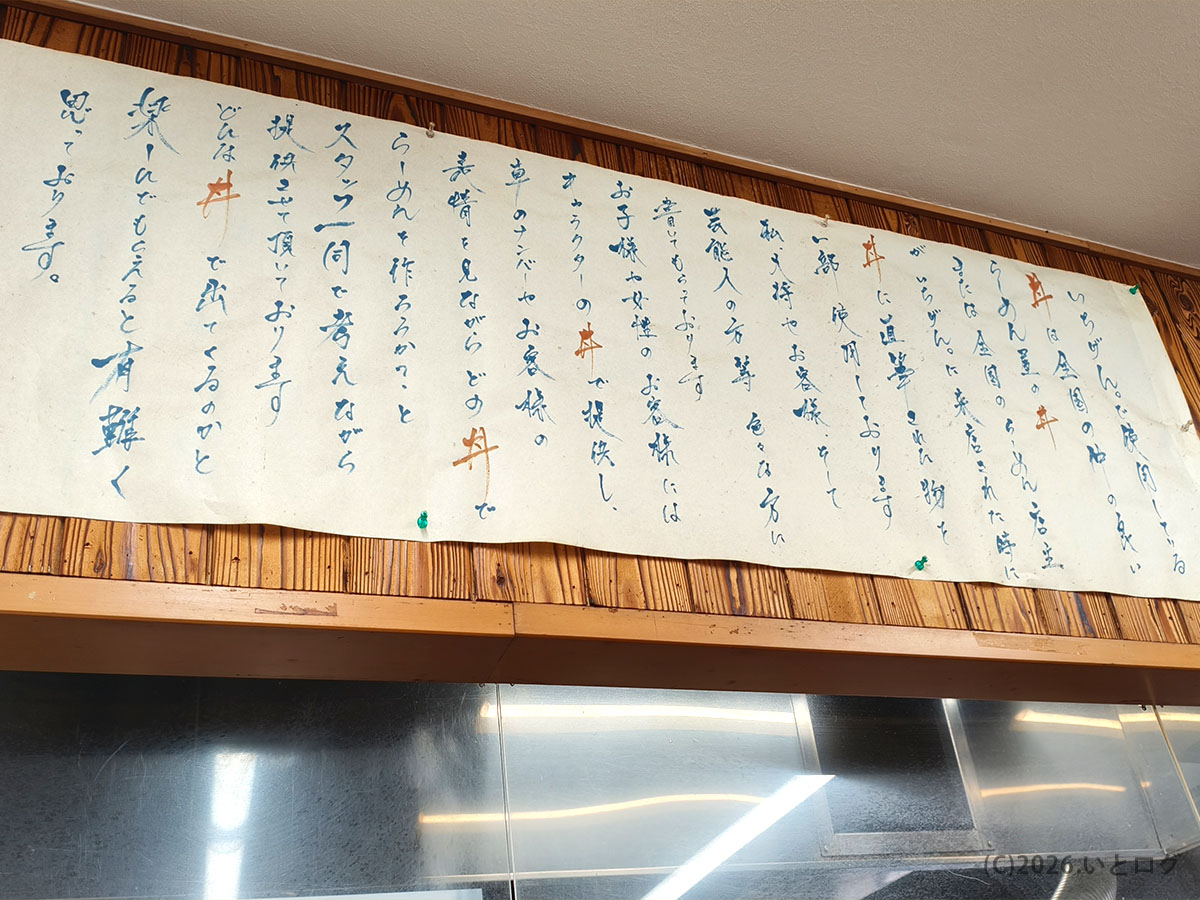 いちげん。で使用している
丼は全国の仲の良い
らーめん屋の丼
または全国のらーめん店主
がいちげん。に来店された時に
丼に直筆された物を
一部使用しております
私、支持やお客様、そして
芸能人の方等色々な方に
書いてもらっております
お子様や女性のお客様には
キャラクターの丼で提供し、
車のナンバーやお客様の
表情を見ながらどの丼で
らーめんを作ろうか?と
スタッフ一同で考えながら
提供させて頂いております
どんな丼で出てくるのかと
楽しんでもらえると有難く
思っております。
(C)2026.いとログ